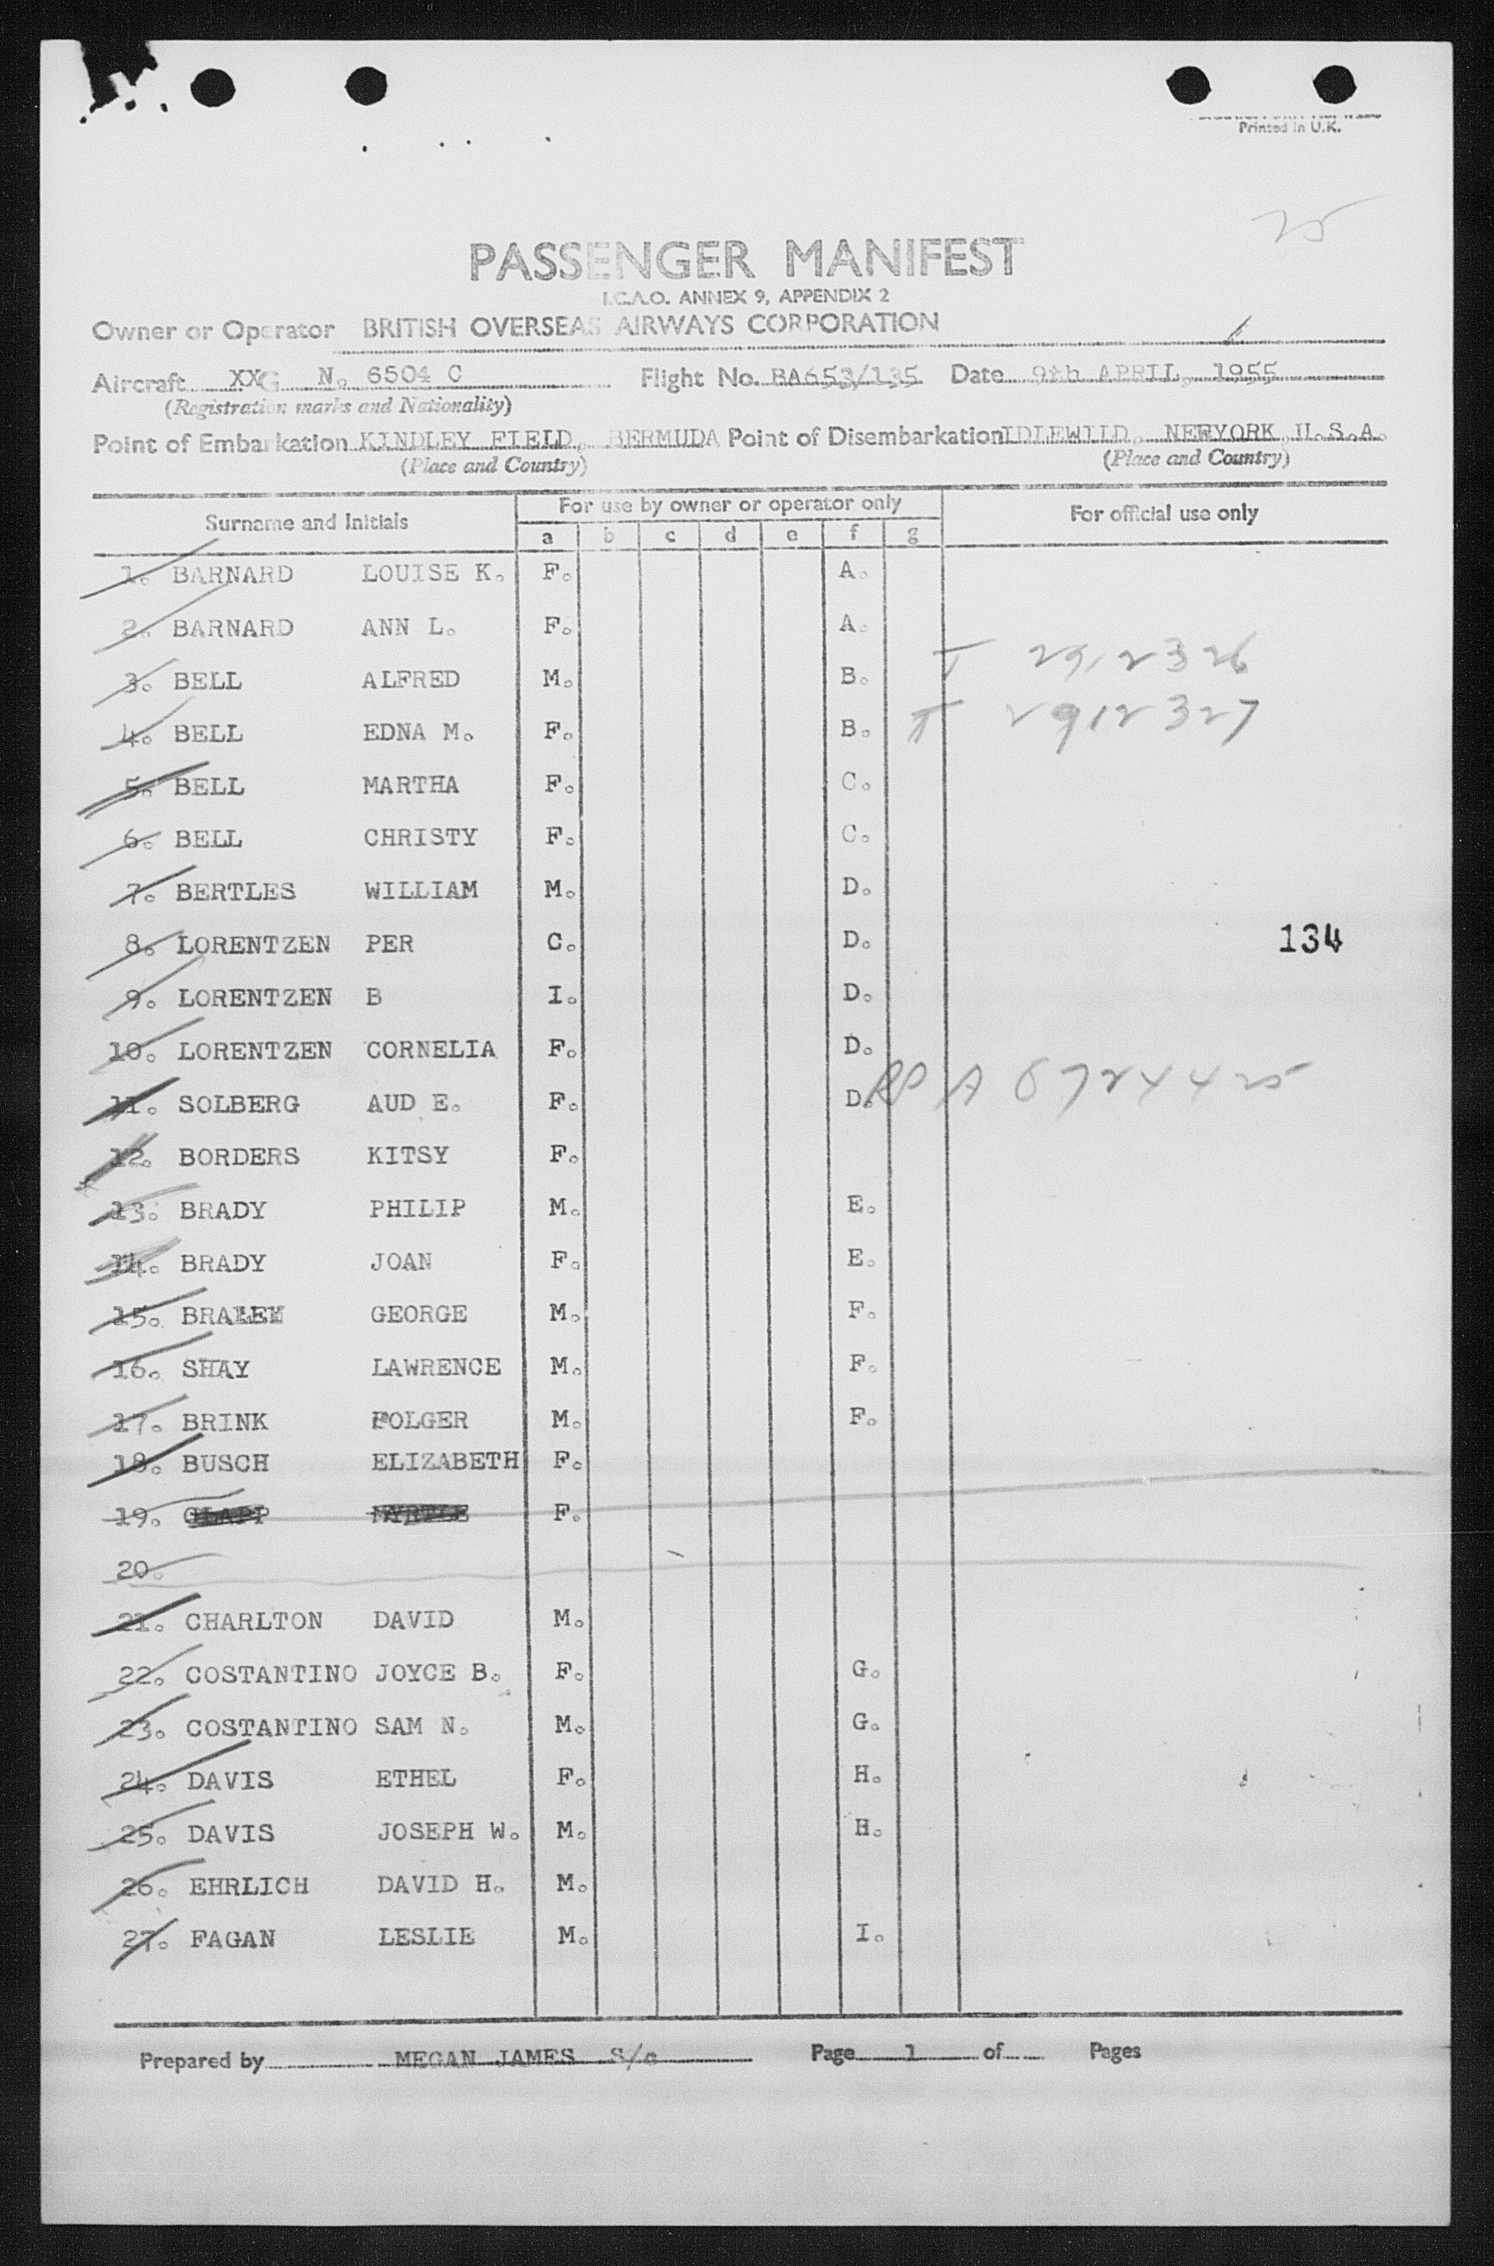 Printed in U.K.
25
PASSENGER MANIFEST
I.C.A.O. ANNEX 9, APPENDIX 2
Owner or Operator BRITISH OVERSEAS AIRWAYS CORPORATION
Aircraft XXG N. 6504 C Flight No. BA653/135 Date 9th APRIL, 1955
(Registration marks and Nationality)
Point of Embarkation KINDLEY FIELD, BERMUDA Point of Disembarkation IDLEWILD, NEWYORK, U.S.A.
(Place and Country) (Place and Country)
Surname and Initials For use by owner or operator only For official use only
a b c d e f g
1. BARNARD LOUISE K. F. A.
2. BARNARD ANN L. F. A.
3. BELL ALFRED M. B. T 2912326
4. BELL EDNA M. F. B. T 2912327
5. BELL MARTHA F. C.
6. BELL CHRISTY F. C.
7. BERTLES WILLIAM M. D.
8. LORENTZEN PER C. D. 134
9. LORENTZEN B I. D.
10. LORENTZEN CORNELIA F. D.
11. SOLBERG AUD E. F. D. A 6724425
12. BORDERS KITSY F.
13. BRADY PHILIP M. E.
14. BRADY JOAN F. E.
15. GEORGE M. F.
16. SHAY LAWRENCE M. F.
17. BRINK FOLGER M. F.
18. BUSCH ELIZABETH F.
19. CLAPP MYRTLE F.
20.
21. CHARLTON DAVID M.
22. COSTANTINO JOYCE B. F. G.
23. COSTANTINO SAM N. M. G.
24. DAVIS ETHEL F. H.
25. DAVIS JOSEPH W. M. H.
26. EHRLICH DAVID H. M.
27. FAGAN LESLIE M. I.
Prepared by MEGAN JAMES S/c Page 1 of Pages